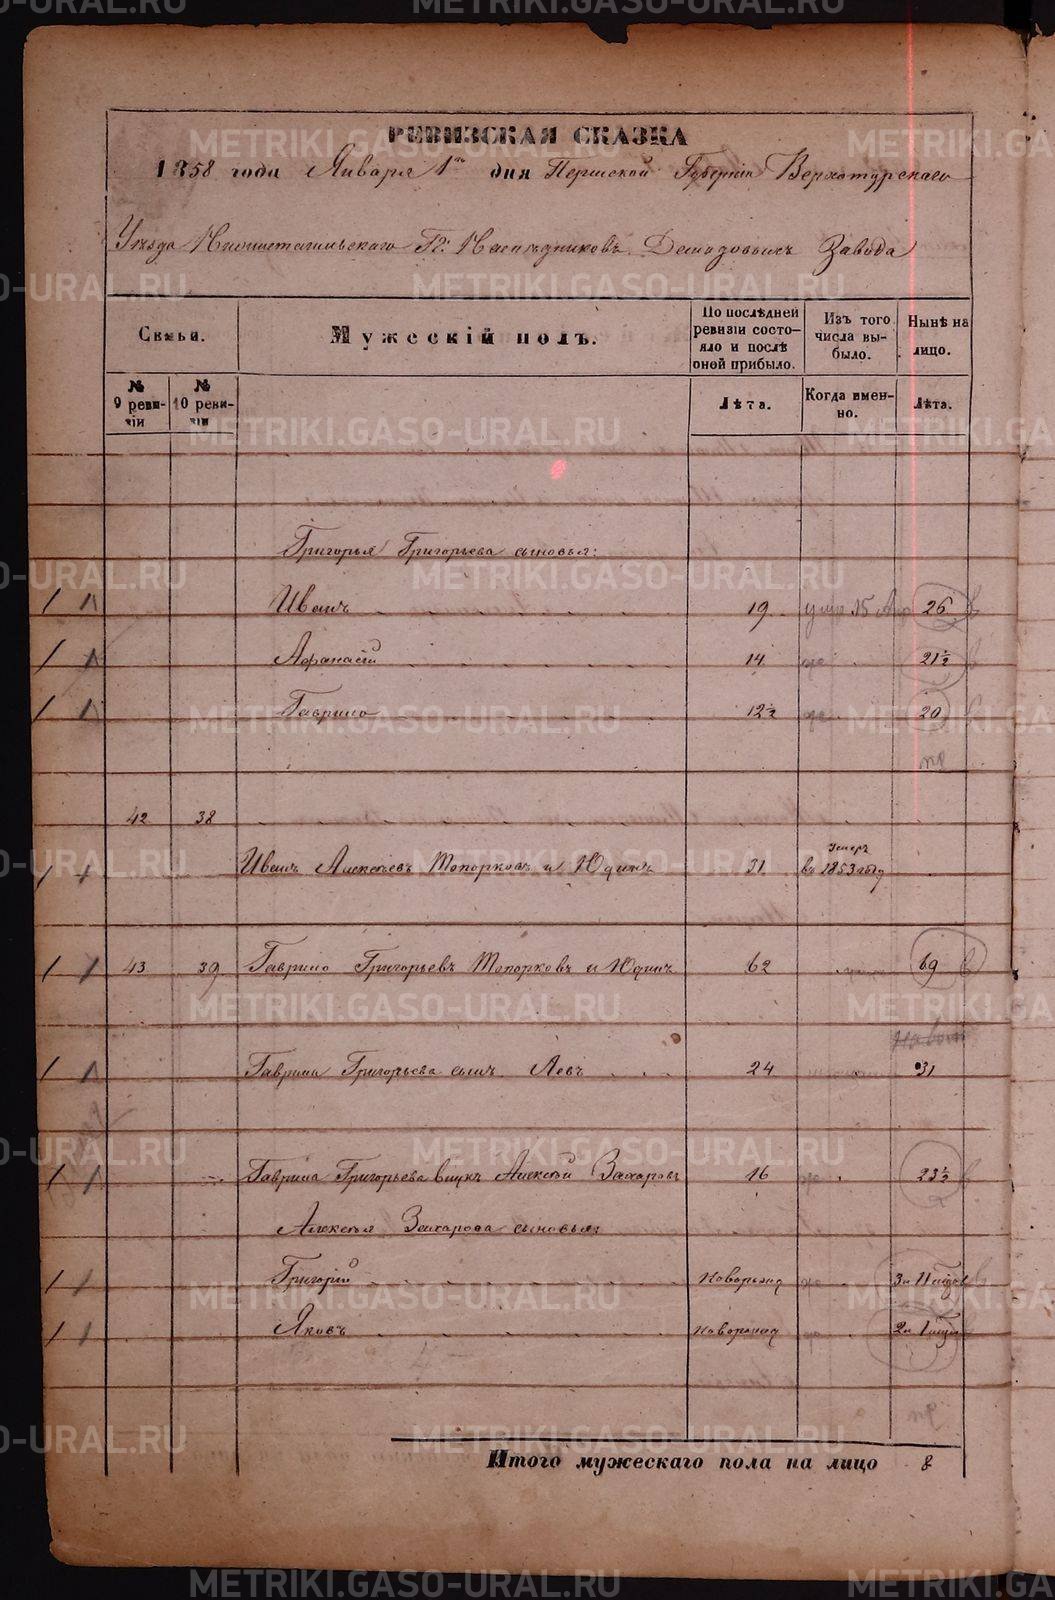 РЕВИЗСКАЯ СКАЗКА
1858 года Января 1го дня Пермской Губерніи Верхотурскаго
Уѣзда Нижнетагильскаго Гг: Наслѣдниковъ Демидовыхъ Завода
Семьи. Мужескій полъ. По послѣдней ревизіи состояло и послѣ оной прибыло. Изъ того числа выбыло. Нынѣ на лицо.
№ 9 ревизіи № 10 ревизіи Лѣта. Когда именно. Лѣта.
Григорья Григорьева сыновья:
Иванъ 19 26
Афанасій 14 21½
Гаврило 12½ 20
42 38
Иванъ Алексѣевъ Топорковъ и Юдинъ 31 умеръ въ 1853 году
43 39 Гаврило Григорьевъ Топорковъ и Юдинъ 62 69
Гаврила Григорьева сынъ Левъ 24 31
Гаврила Григорьева внукъ Алексѣй Захаровъ 16 23½
Алексѣя Захарова сыновья:
Григорій новорожд 3и 11 мѣсяц
Яковъ новорожд 2и 1 мѣсяц
Итого мужескаго пола на лицо 8
METRIKI.GASO-URAL.RU